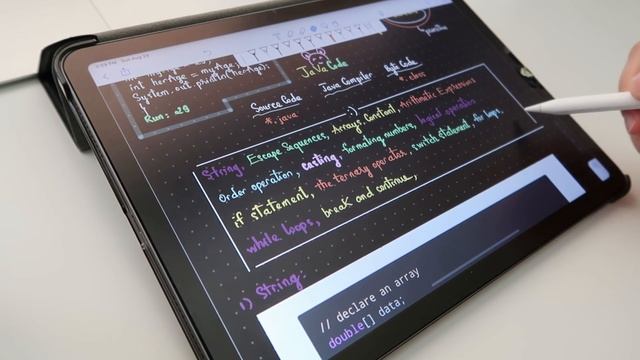 int herAge = myAge;
System.out.println(herAge);
Run: 29
Java Code
Source Code
Java Compiler
Byte Code
*.java
*.class
String, Escape Sequences, Arrays, Constant, Arithmetic Expressions
Order operation, casting, formating numbers, logical operators
if statement, the ternary operator, switch statement, for loops,
while loops, break and continue,
1) String:
// declare an array
double[] data;